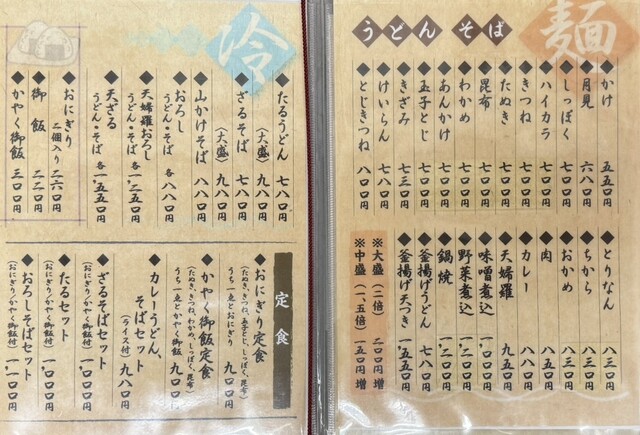 麺
うどんそば
◆かけ 五五〇円
◆月見 六八〇円
◆しっぽく 七八〇円
◆ハイカラ 七八〇円
◆きつね 七八〇円
◆たぬき 七八〇円
◆昆布 七八〇円
◆わかめ 七八〇円
◆あんかけ 七八〇円
◆玉子とじ 七八〇円
◆きざみ 七三〇円
◆けいらん 七八〇円
◆とじきつね 八八〇円
◆とりなん 八三〇円
◆ちから 八三〇円
◆おかめ 八三〇円
◆肉 八五〇円
◆カレー 八五〇円
◆天婦羅 九五〇円
◆味噌煮込 一、〇〇〇円
◆野菜煮込 一、二〇〇円
◆鍋焼 一、二〇〇円
◆釜揚げうどん 七八〇円
◆釜揚げ天つき 一、五五〇円
※大盛（二倍） 二〇〇円 増
※中盛（一、五倍） 一五〇円 増
冷
◆たるうどん 七八〇円
（大盛） 九八〇円
◆ざるそば 七八〇円
（大盛） 九八〇円
◆山かけそば 八八〇円
◆おろし
うどん・そば 各 八八〇円
◆天婦羅おろし
うどん・そば 各 一、二五〇円
◆天ざる
うどん・そば 各 一、五五〇円
◆おにぎり 二個入り 二六〇円
◆御飯 二二〇円
◆かやく御飯 三〇〇円
定食
◆おにぎり定食
（たぬき、きつね、玉子とじ、しっぽく、昆布）
うち一点とおにぎり 九〇〇円
◆かやく御飯定食
（たぬき、きつね、わかめ、しっぽく、昆布）
うち一点とかやく御飯 九〇〇円
◆カレーうどん、
そばセット
（ライス付） 九八〇円
◆ざるそばセット
（おにぎり/かやく御飯付） 一、〇〇〇円
◆たるセット
（おにぎり/かやく御飯付） 一、〇〇〇円
◆おろしそばセット
（おにぎり/かやく御飯付） 一、一〇〇円